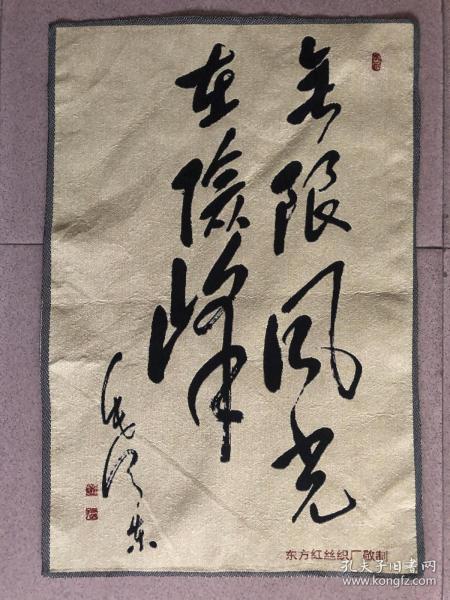 无限风光
在險峰
毛泽东
东方红丝织厂敬制
孔夫子旧书网
www.kongfz.com